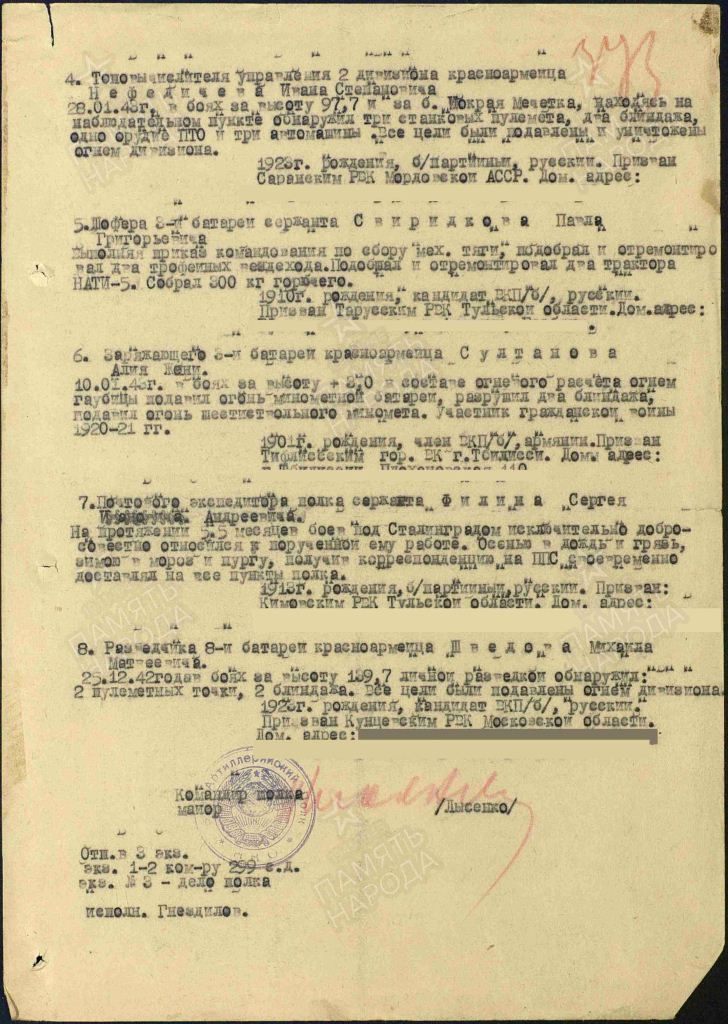 373
4. Топовычислителя управления 2 дивизиона красноармейца
Нефедичева Ивана Степановича
28.01.43г. в боях за высоту 97,7 и за б. Мокрая Мечетка, находясь на
наблюдательном пункте обнаружил три станковых пулемета, два блиндажа,
одно орудие ПТО и три автомашины. Все цели были подавлены и уничтожены
огнем дивизиона.
1923г. рождения, б/партийный, русский. Призван
Саранским РВК Мордовской АССР. Дом. адрес:
5. Шофера 8-й батареи сержанта Свиридкова Павла
Григорьевича
Выполняя приказ командования по сбору мех. тяги, подобрал и отремонтиро
вал два трофейных вездехода. Подобрал и отремонтировал два трактора
НАТИ-5. Собрал 300 кг горючего.
1910г. рождения, кандидат ВКП/б/, русский.
Призван Тарусским РВК Тульской области. Дом.адрес:
6. Заряжающего 8-й батареи красноармейца Султанова
Алия Жени.
10.01.43г. в боях за высоту + 3,0 в составе огневого расчета огнем
гаубицы подавил огонь минометной батареи, разрушил два блиндажа,
подавил огонь шестиствольного миномета. Участник гражданской войны
1920-21 гг.
1901г. рождения, член ВКП/б/, армянин. Призван
Тифлисским гор. ВК г. Тбилиси. Дом. адрес:
7. Почтового экспедитора полка сержанта Филина Сергея
Андреевича.
На протяжении 5,5 месяцев боев под Сталинградом исключительно добро-
совестно относился к порученной ему работе. Осенью в дождь и грязь,
зимою в мороз и пургу, получив корреспонденцию на ППС своевременно
доставлял на все пункты полка.
1913г. рождения, б/партийный, русский. Призван:
Кимовским РВК Тульской области. Дом. адрес:
8. Разведчика 8-й батареи красноармейца Шведова Михаила
Матвеевича.
25.12.42года в боях за высоту 139,7 личной разведкой обнаружил:
2 пулеметных точки, 2 блиндажа. Все цели были подавлены огнем дивизиона.
1923г. рождения, кандидат ВКП/б/, русский.
Призван Кунцевским РВК Московской области.
Дом. адрес:
Артиллерийский
Командир полка
майор /Лысенко/
Отп. в 3 экз.
экз. 1-2 ком-ру 299 с.д.
экз. № 3 - дело полка
исполн. Гнездилов.
ПАМЯТЬ НАРОДА